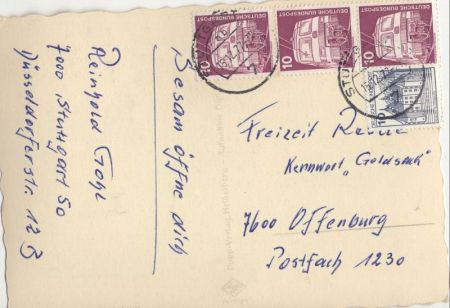 Sesam öffne dich
Reinhold Gohl
7000 Stuttgart 50
Düsseldorferstr. 123
DEUTSCHE BUNDESPOST
10
DEUTSCHE BUNDESPOST
10
DEUTSCHE BUNDESPOST
10
10
STUTTG
Freizeit Revue
Kennwort „Goldsack"
7600 Offenburg
Postfach 1230